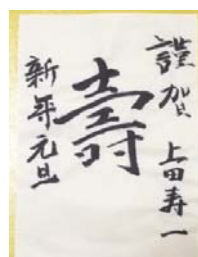 謹賀 上田寿一
壽
新年元旦